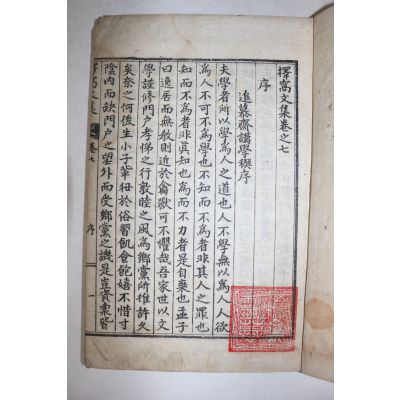 擇窩文集卷之七
序
追慕齋講學稧序
夫學者所以學爲人之道也人不學無以爲人人欲
爲人不可不爲學也不知而不爲者非其人之罪也
知而不爲者非眞知也爲而不力者是自棄也孟子
曰逸居而無敎則近於禽獸可不懼哉吾家世以文
學謹修門戶孝悌之行敦睦之風爲鄉黨所推許久
矣奈之何後生小子輩狃於俗習飢會飽嬉不惜寸
陰內而缺門戶之望外而受鄉黨之譏是豈資稟皆
文集
卷七
序
一